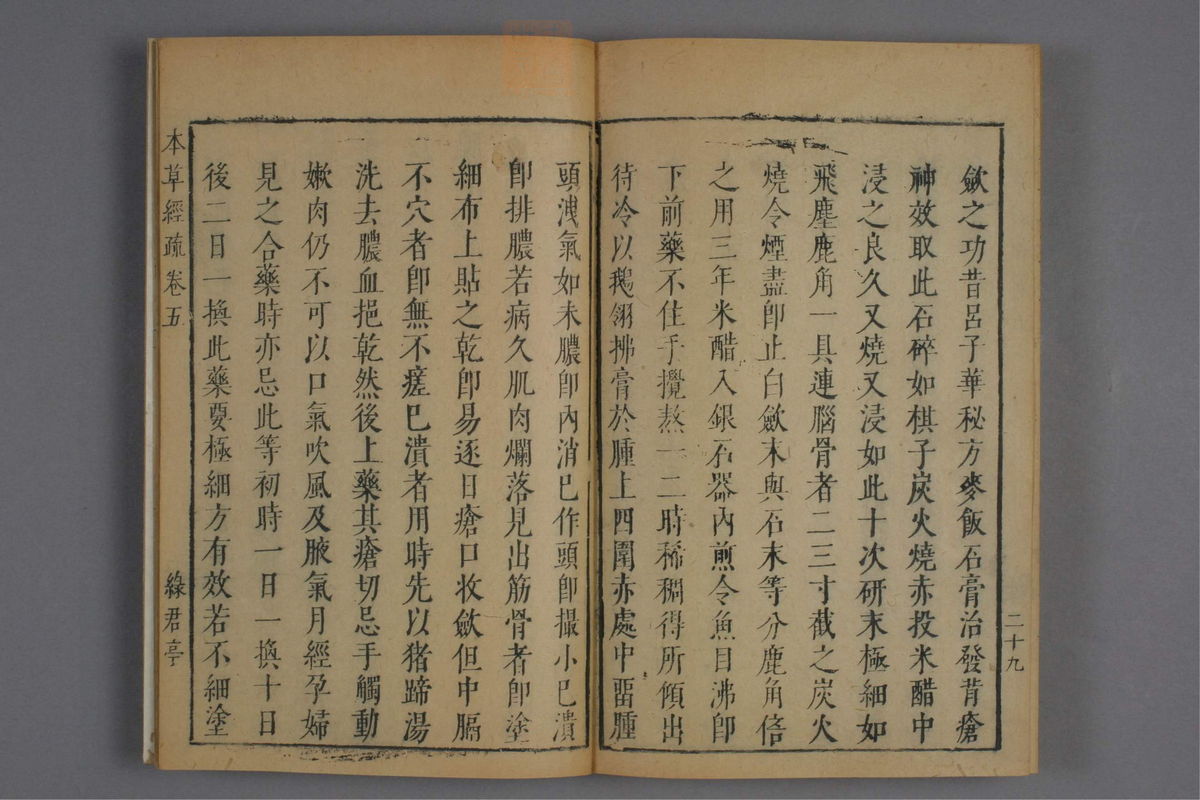 歛之功昔呂子華秘方麥飯石膏治發背瘡
神效取此石碎如棋子炭火燒赤投米醋中
浸之良久又燒又浸如此十次研末極細如
飛塵鹿角一具連腦骨者二三寸截之炭火
燒令煙盡卽止白歛末與石末等分鹿角倍
之用三年米醋入銀石器內煎令魚目沸卽
下前藥不住手攪熬一二時稀稠得所傾出
待冷以鵝翎拂膏於腫上四圍赤處中留腫
二十九
頭洩氣如未膿卽內消巳作頭卽撮小巳潰
卽排膿若病久肌肉爛落見出筋骨者卽塗
細布上貼之乾卽易逐日瘡口收歛但中膈
不穴者卽無不瘥巳潰者用時先以猪蹄湯
洗去膿血挹乾然後上藥其瘡切忌手觸動
嫩肉仍不可以口氣吹風及腋氣月經孕婦
見之合藥時亦忌此等初時一日一換十日
後二日一換此藥要極細方有效若不細塗
本草經疏 卷五 綠君亭